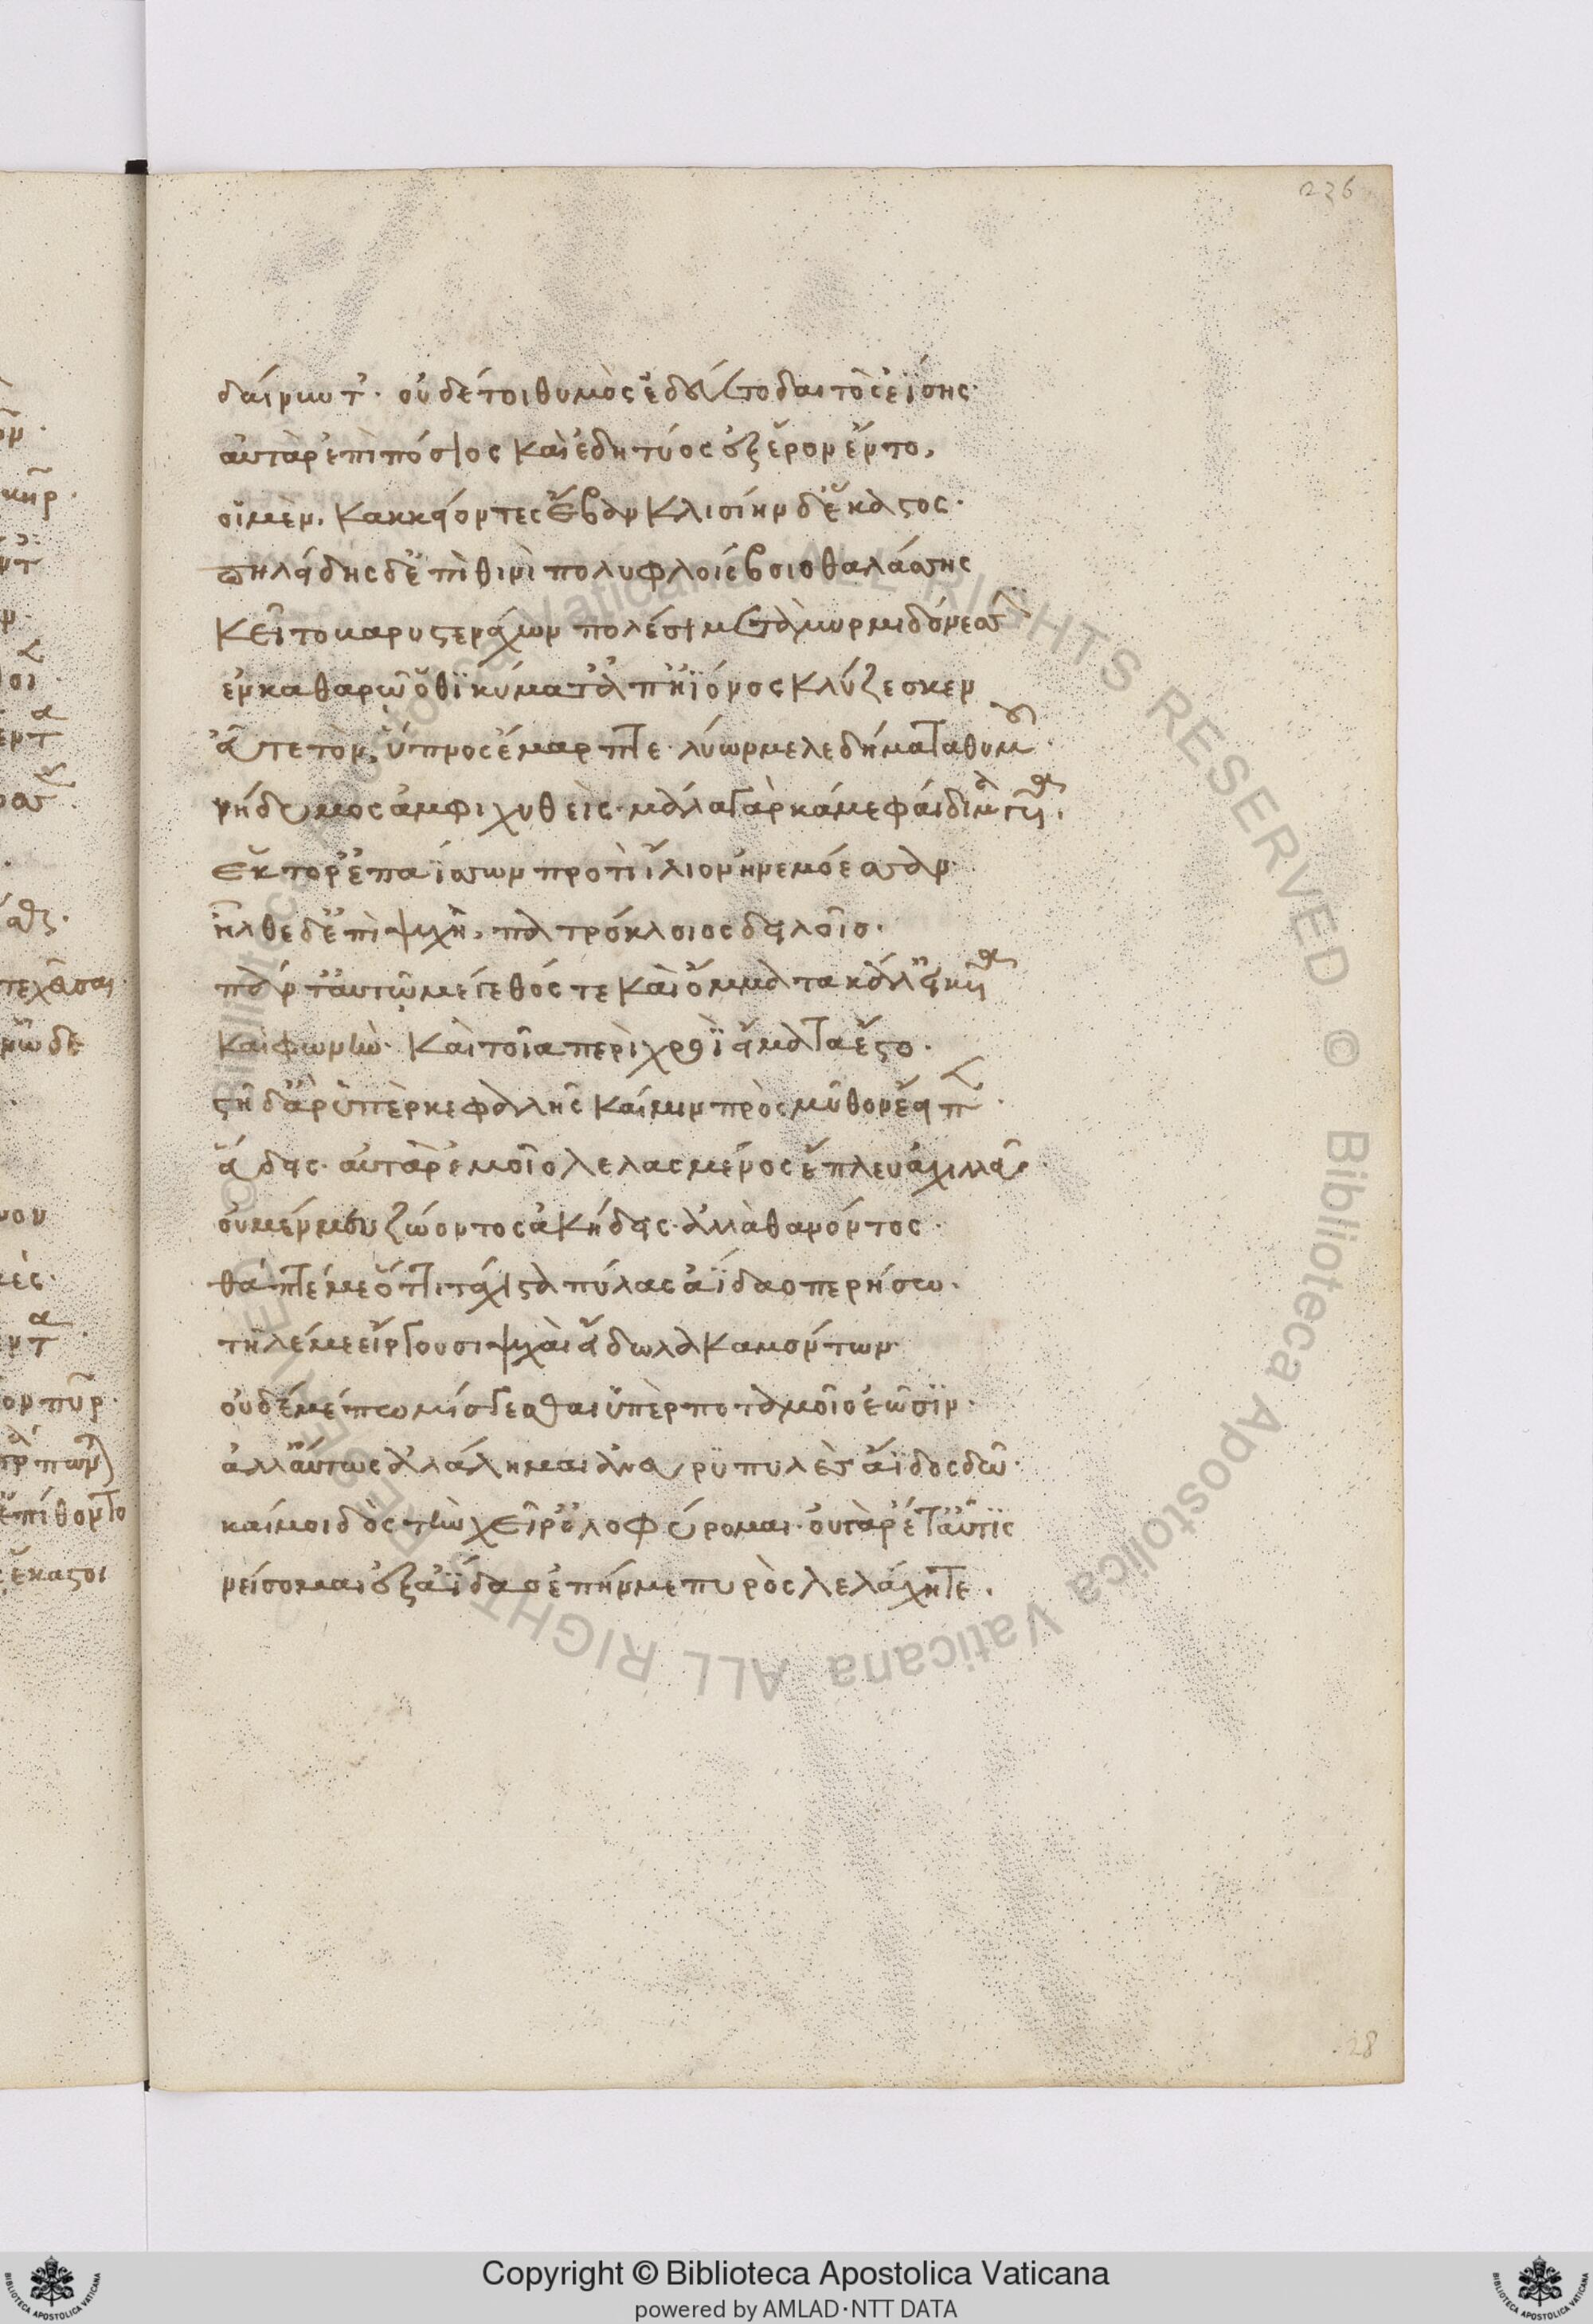 236
δαίνυντ'. οὐδέ τοι θυμὸς ἐδεύετο δαιτὸς ἐΐσης.
αὐτὰρ ἐπὶ πόσιος καὶ ἐδητύος ἐξ ἔρον ἕντο,
οἱ μὲν, κακκείοντες ἔβαν κλισίην δὲ ἕκαστος.
πηλείδης δ' ἐπὶ θινὶ πολυφλοίσβοιο θαλάσσης
κεῖτο βαρυστενάχων πολέσιν μετὰ μυρμιδόνεσσιν
ἐν καθαρῷ ὅθι κύματ' ἐπ' ἠϊόνος κλύζεσκεν
εὖτε τὸν ὕπνος ἔμαρπτε. λύων μελεδήματα θυμοῦ.
νήδυμος ἀμφιχυθείς. μάλα γὰρ κάμε φαίδιμα γυῖα.
ἕκτορ' ἐπαΐσσων προτὶ ἴλιον ἠνεμόεσσαν
ἦλθε δ' ἐπὶ ψυχὴ, πατροκλῆος δειλοῖο.
πάντ' αὐτῷ μέγεθός τε καὶ ὄμματα κάλ' εἰκυῖα
καὶ φωνὴν. καὶ τοῖα περὶ χροῒ εἵματα ἕστο.
στῆ δ' ἄρ' ὑπὲρ κεφαλῆς καί μιν πρὸς μῦθον ἔειπεν.
εὕδεις. αὐτὰρ ἐμοῖο λελασμένος ἔπλευ ἀχιλλεῦ.
οὐ μέν μευ ζώοντος ἀκήδεις. ἀλλὰ θανόντος.
θάπτέ με ὅττι τάχιστα πύλας ἀΐδαο περήσω.
τῆλέ με εἴργουσι ψυχαὶ εἴδωλα καμόντων
οὐδέ με πω μίσγεσθαι ὑπὲρ ποταμοῖο ἐῶσιν.
ἀλλ' αὔτως ἀλάλημαι ἀν' εὐρυπυλὲς ἄϊδος δῶ.
καί μοι δὸς τὴν χεῖρ' ὀλοφύρομαι. οὐ γὰρ ἔτ' αὖτις
νείσομαι ἐξ ἀΐδαο ἐπήν με πυρὸς λελάχητε.
28
Copyright © Biblioteca Apostolica Vaticana
powered by AMLAD·NTT DATA